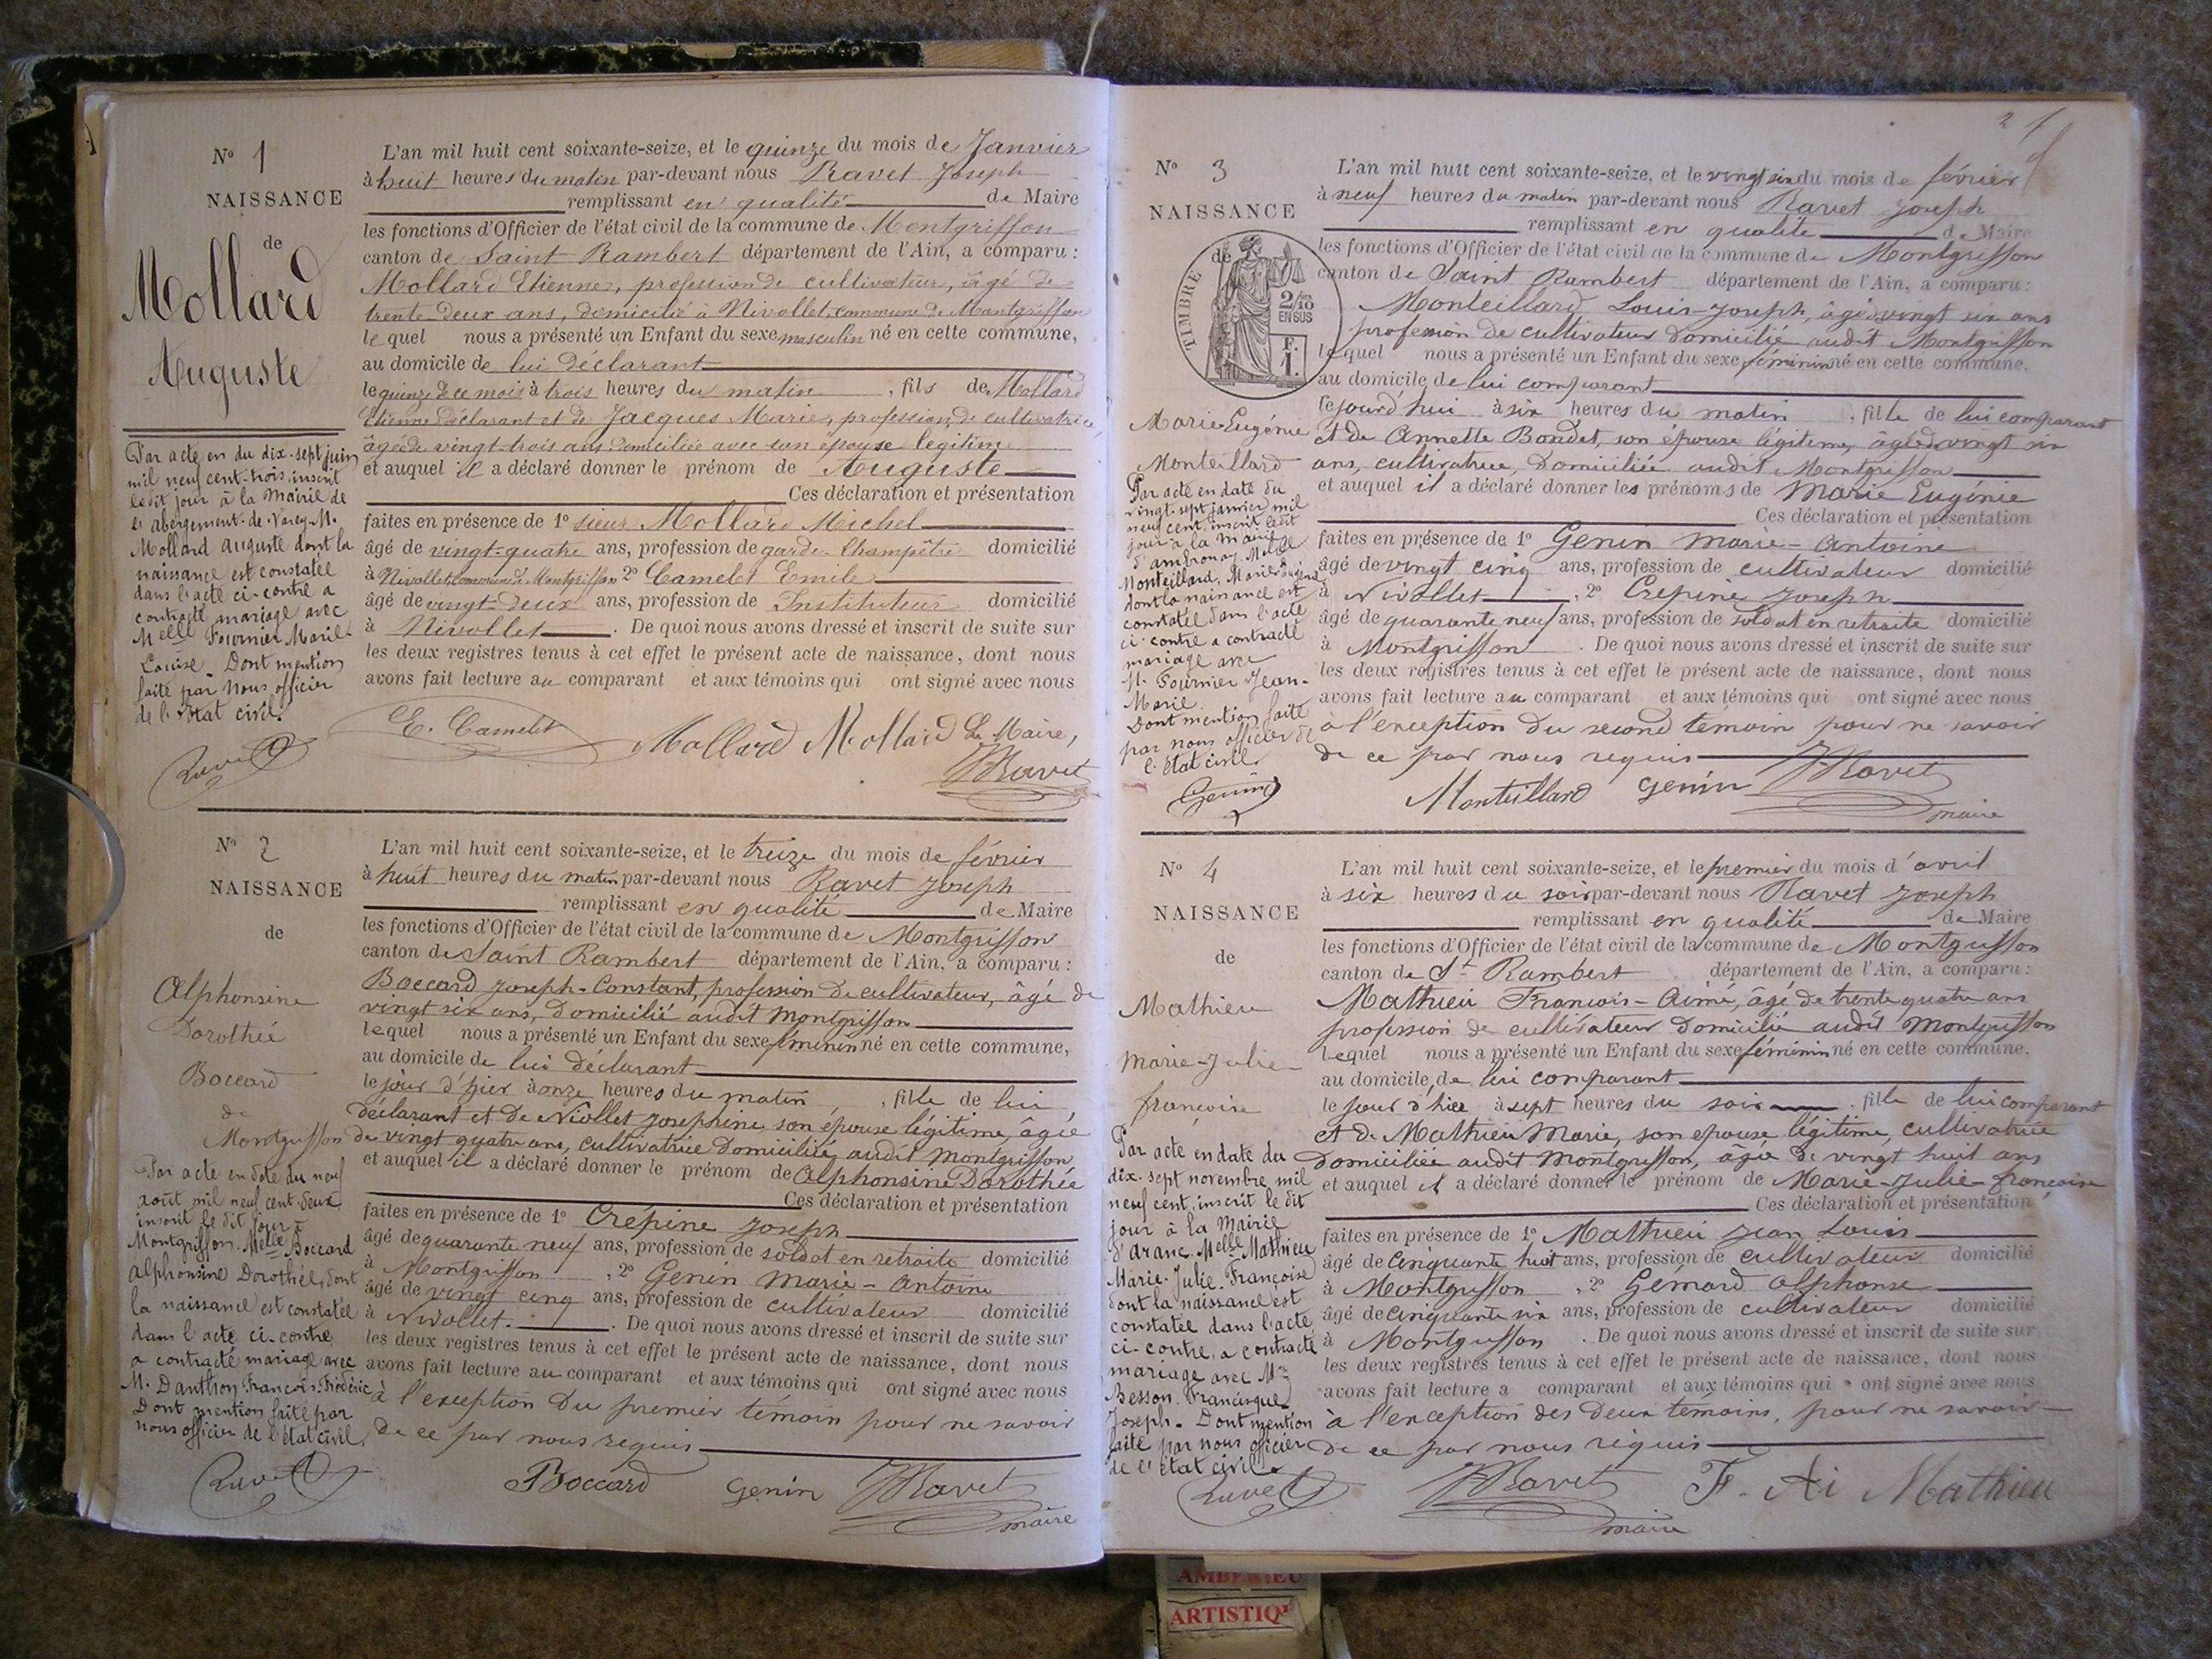 N° 1
NAISSANCE
de
Mollard
Auguste
Par acte en du dix-sept juin
mil neuf cent-trois, inscrit
ledit jour à la Mairie de
l'abergement-de-Varey M.
Mollard Auguste dont la
naissance est constatée
dans l'acte ci-contre a
contracté mariage avec
Melle Fournier Marie
Louise. Dont mention
faite par Nous officier
de l'Etat civil.
L'an mil huit cent soixante-seize, et le quinze du mois de Janvier
à huit heures du matin par-devant nous Ravet Joseph
remplissant en qualité de Maire
les fonctions d'Officier de l'état civil de la commune de Montgriffon
canton de Saint Rambert département de l'Ain, a comparu :
Mollard Etienne, profession de cultivateur, âgé de
trente-deux ans, domicilié à Nivollet, commune de Montgriffon
lequel nous a présenté un Enfant du sexe masculin né en cette commune,
au domicile de lui déclarant
le quinze de ce mois à trois heures du matin , fils de Mollard
Etienne déclarant et de Jacques Marie, profession de cultivatrice,
âgée de vingt-trois ans domiciliée avec son épouse legitime
et auquel il a déclaré donner le prénom de Auguste
Ces déclaration et présentation
faites en présence de 1° sieur Mollard Michel
âgé de vingt-quatre ans, profession de garde Champêtre domicilié
à Nivollet commune de Montgriffon 2° Camelet Emile
âgé de vingt-deux ans, profession de Instituteur domicilié
à Nivollet . De quoi nous avons dressé et inscrit de suite sur
les deux registres tenus à cet effet le présent acte de naissance, dont nous
avons fait lecture au comparant et aux témoins qui ont signé avec nous
E. Camelet Mollard Mollard Le Maire,
Ravet
N° 2
NAISSANCE
de
Alphonsine
Dorothée
Boccard
de
Montgriffon
Par acte en date du neuf
août mil neuf cent-deux
inscrit le dit jour à
Montgriffon. Melle Boccard
Alphonsine Dorothée, dont
la naissance est constatée
dans l'acte ci-contre
a contracté mariage avec
M. Danthon François-Frédéric
Dont mention faite par
nous officier de l'état civil,
L'an mil huit cent soixante-seize, et le treize du mois de février
à huit heures du matin par-devant nous Ravet Joseph
remplissant en qualité de Maire
les fonctions d'Officier de l'état civil de la commune de Montgriffon
canton de Saint Rambert département de l'Ain, a comparu :
Boccard Joseph-Constant, profession de cultivateur, âgé de
vingt six ans, domicilié audit Montgriffon
lequel nous a présenté un Enfant du sexe féminin né en cette commune,
au domicile de lui déclarant
le jour d'hier à onze heures du matin , fille de lui
déclarant et de Niollet Josephine son épouse légitime, âgée
de vingt quatre ans, cultivatrice domiciliée audit Montgriffon
et auquel il a déclaré donner le prénom de Alphonsine Dorothée
Ces déclaration et présentation
faites en présence de 1° Crépine Joseph
âgé de quarante neuf ans, profession de soldat en retraite domicilié
à Montgriffon , 2° Genin Marie-Antoine
âgé de vingt cinq ans, profession de cultivateur domicilié
à Nivollet. . De quoi nous avons dressé et inscrit de suite sur
les deux registres tenus à cet effet le présent acte de naissance, dont nous
avons fait lecture au comparant et aux témoins qui ont signé avec nous
à l'exception du premier témoin pour ne savoir
de ce par nous requis
Boccard Genin Ravet
maire
N° 3
NAISSANCE
de
TIMBRE
2/10
EN SUS
F.
1.
Marie Eugénie
Monteillard
Par acte en date du
vingt-sept janvier mil
neuf cent inscrit ledit
jour à la Mairie
d'ambronay Melle
Monteillard, Marie Eugénie
dont la naissance est
constatée dans l'acte
ci-contre a contracté
mariage avec
M. Fournier Jean-
Marie.
Dont mention faite
par nous officier de
l'état civil
Genin
L'an mil huit cent soixante-seize, et le vingt six du mois de février
à neuf heures du matin par-devant nous Ravet Joseph
remplissant en qualité de Maire
les fonctions d'Officier de l'état civil de la commune de Montgriffon
canton de Saint Rambert département de l'Ain, a comparu :
Monteillard Louis-Joseph, âgé de vingt six ans
profession de cultivateur domicilié audit Montgriffon
lequel nous a présenté un Enfant du sexe féminin né en cette commune.
au domicile de lui comparant
cejourd'hui à six heures du matin , fille de lui comparant
et de Annette Bondet, son épouse légitime, âgée de vingt six
ans, cultivatrice, domiciliée audit Montgriffon
et auquel il a déclaré donner les prénoms de Marie Eugénie
Ces déclaration et présentation
faites en présence de 1° Genin Marie-Antoine
âgé de vingt cinq ans, profession de cultivateur domicilié
à Nivollet , 2° Crepine Joseph
âgé de quarante neuf ans, profession de soldat en retraite domicilié
à Montgriffon . De quoi nous avons dressé et inscrit de suite sur
les deux registres tenus à cet effet le présent acte de naissance, dont nous
avons fait lecture au comparant et aux témoins qui ont signé avec nous
à l'exception du second témoin pour ne savoir
de ce par nous requis
Monteillard Genin Ravet
maire
N° 4
NAISSANCE
de
Mathieu
Marie-Julie-
françoise
Par acte en date du
dix-sept novembre mil
neuf cent, inscrit le dit
jour à la Mairie
d'Aranc. Melle Mathieu
Marie-Julie-Françoise
dont la naissance est
constatée dans l'acte
ci-contre, a contracté
mariage avec Mr
Besson Francisque
Joseph. Dont mention
faite par nous officier
de l'état civil.
L'an mil huit cent soixante-seize, et le premier du mois d'avril
à six heures du soir par-devant nous Ravet Joseph
remplissant en qualité de Maire
les fonctions d'Officier de l'état civil de la commune de Montgriffon
canton de St Rambert département de l'Ain, a comparu :
Mathieu François-Aimé, âgé de trente quatre ans
profession de cultivateur domicilié audit Montgriffon
lequel nous a présenté un Enfant du sexe féminin né en cette commune.
au domicile de lui comparant
le jour d'hier à sept heures du soir , fille de lui comparant
et de Mathieu Marie, son epouse légitime, cultivatrice
domiciliée audit Montgriffon, âgée de vingt huit ans
et auquel il a déclaré donner le prénom de Marie-Julie-françoise
Ces déclaration et présentation
faites en présence de 1° Mathieu Jean Louis
âgé de cinquante huit ans, profession de cultivateur domicilié
à Montgriffon , 2° Gemard Alphonse
âgé de cinquante six ans, profession de cultivateur domicilié
à Montgriffon . De quoi nous avons dressé et inscrit de suite sur
les deux registres tenus à cet effet le présent acte de naissance, dont nous
avons fait lecture a comparant et aux témoins qui ont signé avec nous
à l'exception des deux témoins, pour ne savoir
de ce par nous requis
Ravet F. Ai Mathieu
maire
AMBERIEU
ARTISTIQ